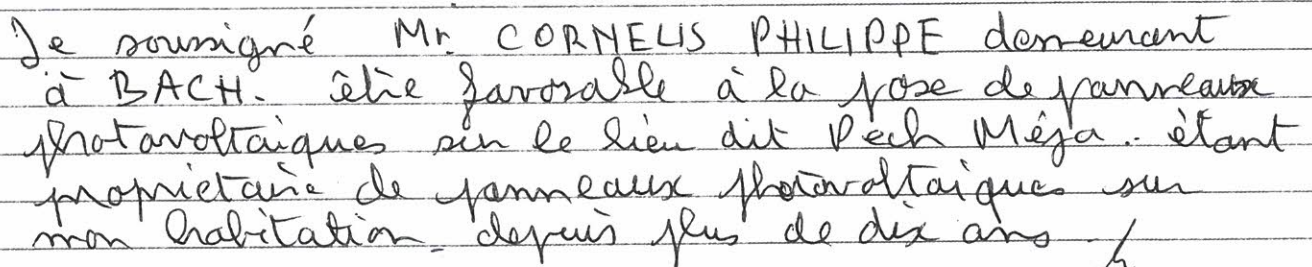 Je soussigné Mr. CORNELIS PHILIPPE demeurant
à BACH. être favorable à la pose de panneaux
photovoltaiques sur le lieu dit Pech Méja. étant
proprietaire de panneaux photovoltaiques sur
mon habitation depuis plus de dix ans